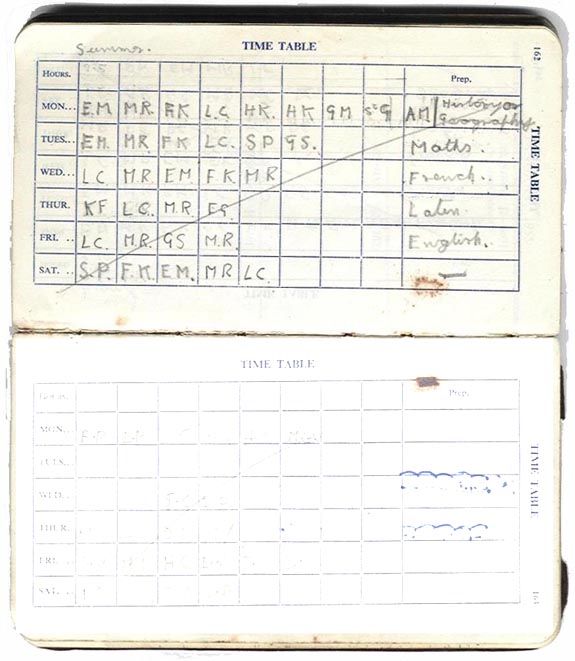 Summer.
TIME TABLE
162
HOURS. Prep.
MON... E.M M.R. F.K L.C. H.K. H.K G M S=G AM History or
Geography.
TUES... E.M. M R F K L.C. S P G S. Maths.
WED... L C M.R E M F.K M R French.
THUR. K F L.C. M.R. E G. Laten.
FRI. .. L C. M.R. G S M.R. English.
SAT. .. S.P. F.K E.M. M R L.C. —
TIME TABLE
TIME TABLE
HOURS. Prep.
MON...
TUES...
WED...
THUR.
FRI. ..
SAT. ..
TIME TABLE